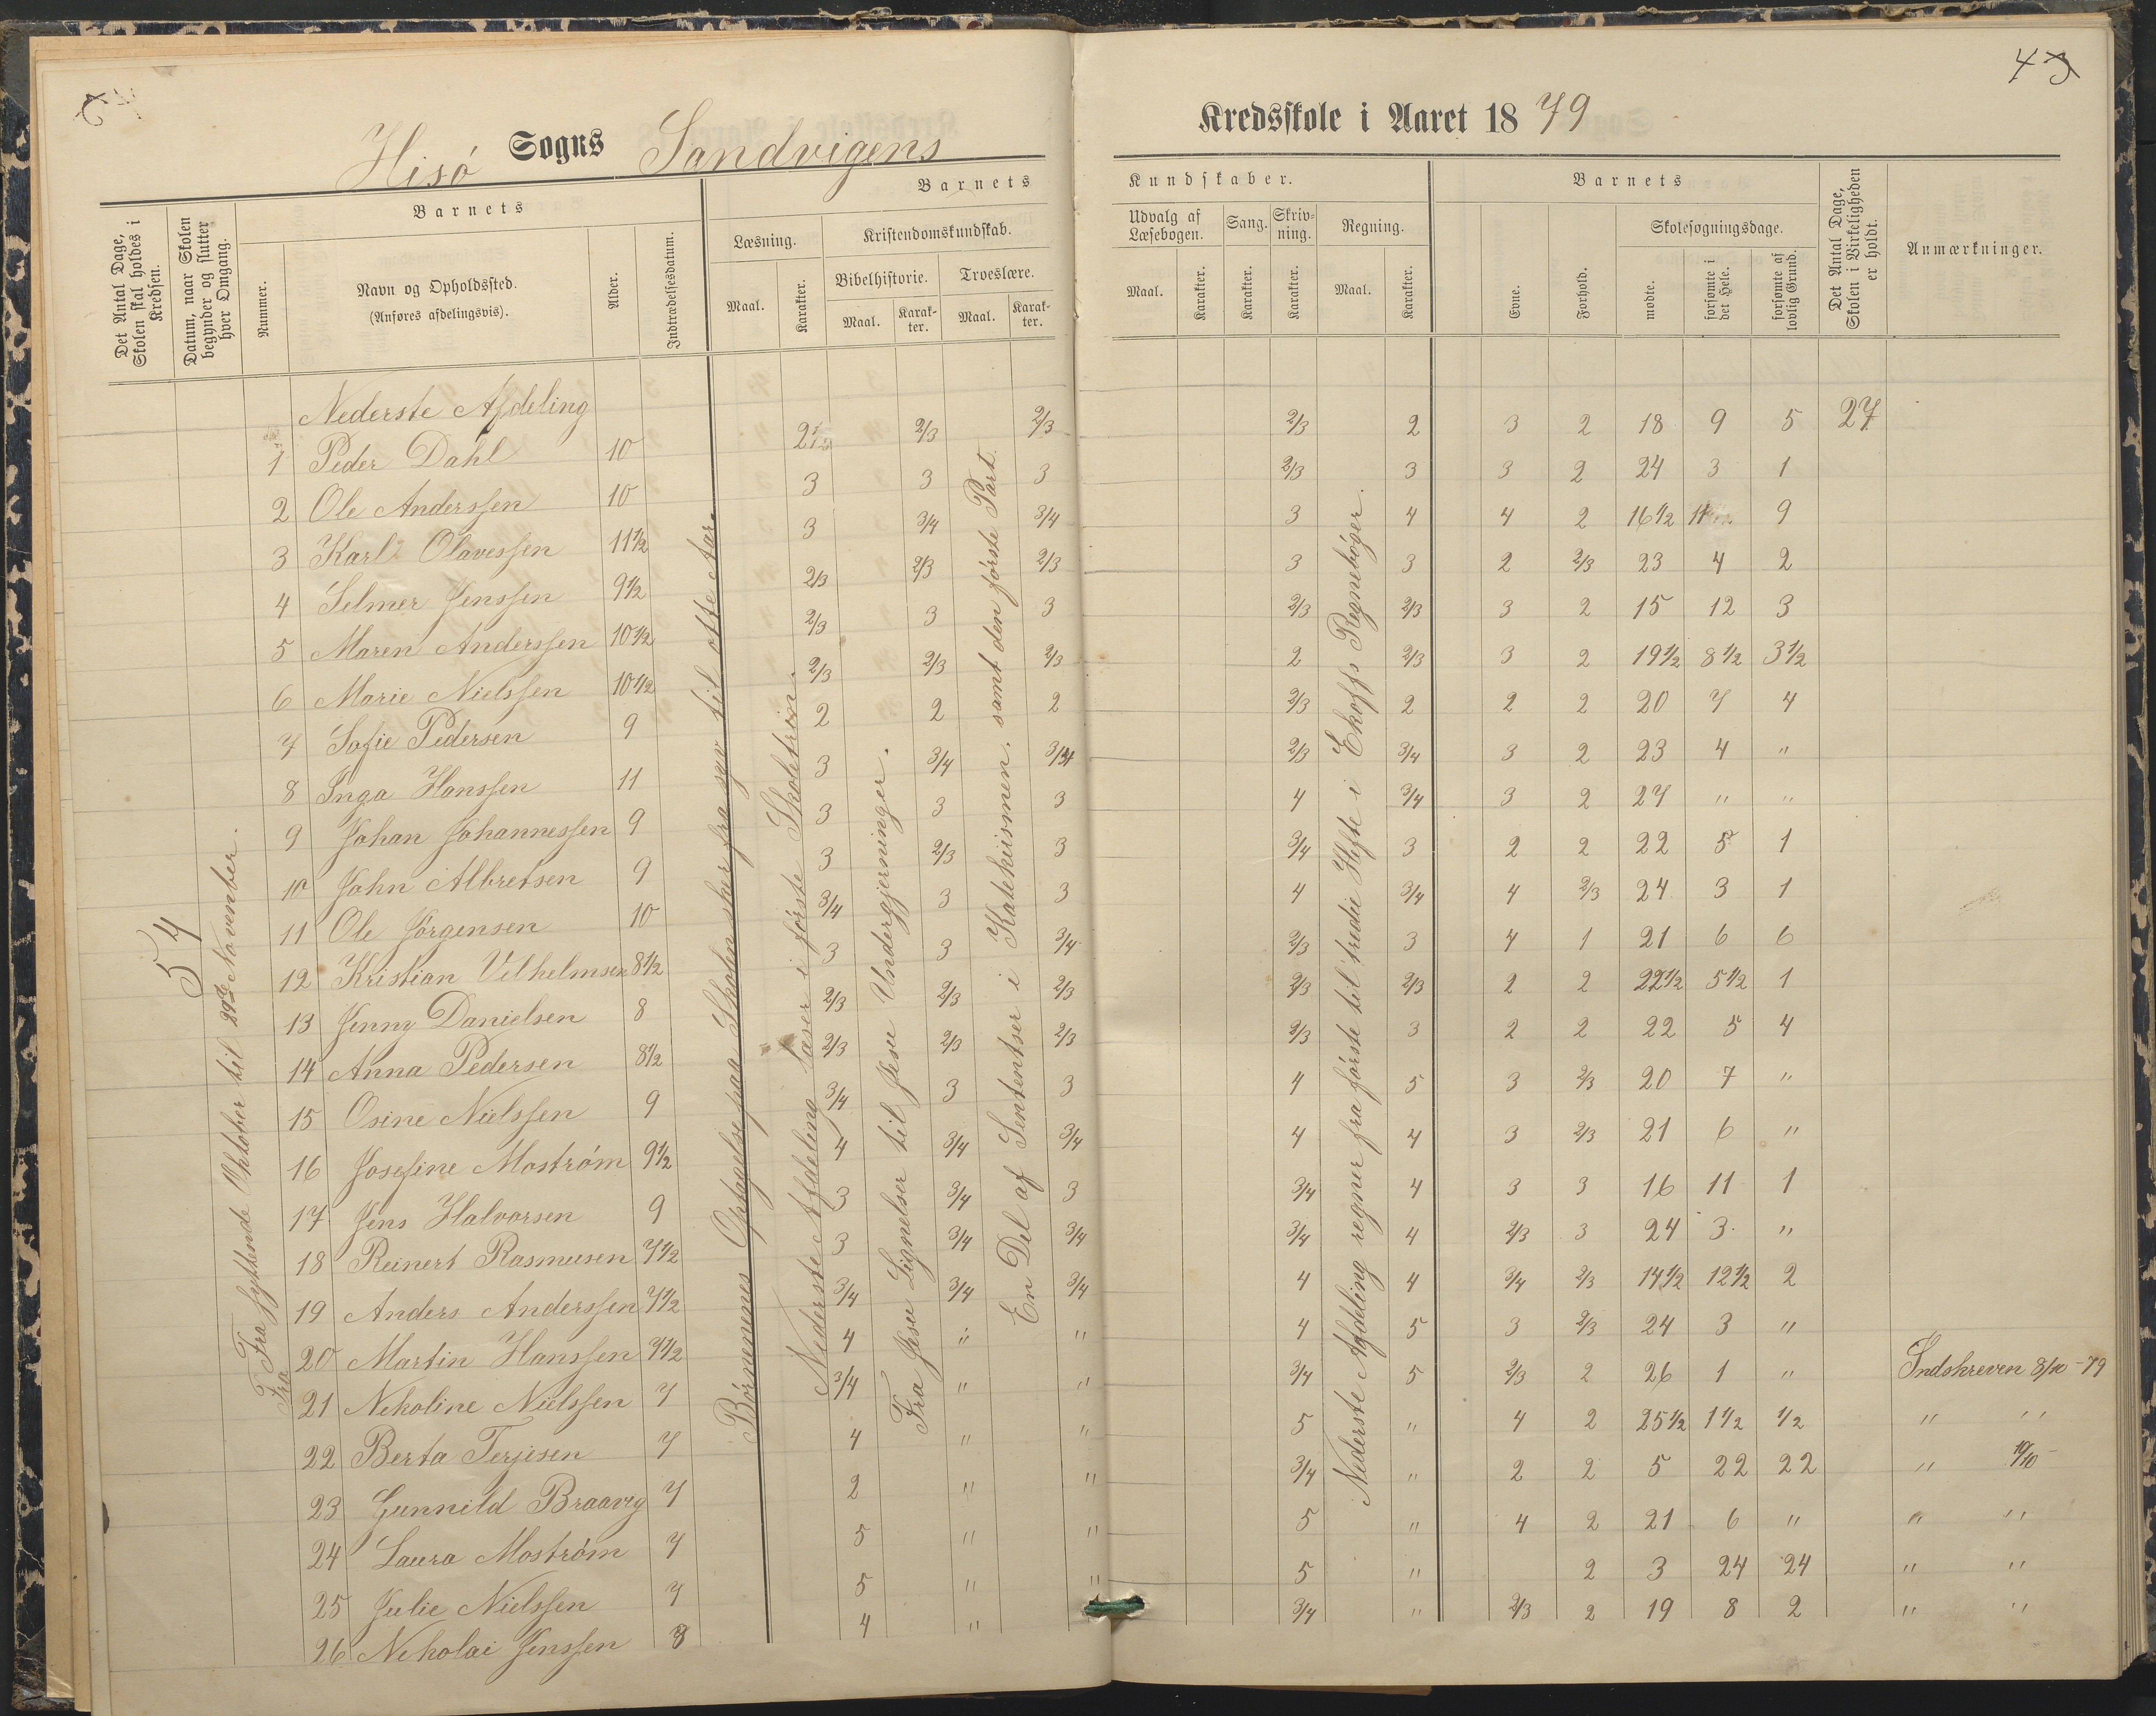 43
Hisö Sogns Sandvigens Kredsskole i Aaret 1879
Det Antal Dage, Skolen skal holdes i Kredsen.
Datum, naar Skolen begynder og slutter hver Omgang.
Barnets
Nummer.
Navn og Opholdssted.
(Anføres afdelingsvis).
Alder.
Indtrædelsesdatum.
Barnets Kundskaber.
Læsning.
Maal. Karakter.
Kristendomskundskab.
Bibelhistorie. Troeslære.
Maal. Karakter. Maal. Karakter.
Udvalg af Læsebogen.
Maal. Karakter.
Sang.
Karakter.
Skrivning.
Karakter.
Regning.
Maal. Karakter.
Barnets
Evne.
Forhold.
Skolesøgningsdage.
mødte.
forsømte i det Hele.
forsømte af lovlig Grund.
Det Antal Dage, Skolen i Virkeligheden er holdt.
Anmærkninger.
54
Fra syttende Oktober til 29de November.
Fra
Børnenenes Optagelse paa Skolen sker fra syv til otte Aar.
Nederste Afdeling læser i første Skoletrin.
Fra Jesu Lignelser til Jesu Undergjerninger.
En Del af Sententser i Katekismen, samt den første Part.
Nederste Afdeling regner fra første til tredie Hefte i Ekoffs Regnebøger.
Nederste Afdeling
1 Peder Dahl 10 2/3 2/3 2/3 2 3 2 18 9 5 27
2 Ole Anderssen 10 3 3 3 2/3 3 3 2 24 3 1
3 Karl Olavessen 11 1/2 3 3/4 3/4 3 4 4 2 16 1/2 9
4 Selmer Jenssen 9 1/2 2/3 2/3 2/3 3 3 2 2/3 23 4 2
5 Maren Anderssen 10 1/2 2/3 3 3 2/3 2/3 3 2 15 12 3
6 Marie Nielssen 10 1/2 2/3 2/3 2/3 2 2/3 3 2 19 1/2 8 1/2 3 1/2
7 Sofie Pedersen 9 2 2 2 2/3 2 2 2 20 7 4
8 Inga Hanssen 11 3 3/4 3/4 2/3 3/4 3 2 23 4 "
9 Johan Johannessen 9 3 3 3 4 3/4 3 2 27 " "
10 John Albretsen 9 3 2/3 3 3/4 3 2 2 22 5 1
11 Ole Jörgensen 10 3/4 3 3 4 3/4 4 2/3 24 3 1
12 Kristian Vilhelmsen 8 1/2 3 3 3/4 2/3 3 4 1 21 6 6
13 Jenny Danielsen 8 2/3 2/3 2/3 2/3 2/3 2 2 22 1/2 5 1/2 1
14 Anna Pedersen 8 1/2 2/3 2/3 2/3 2/3 3 2 2 22 5 4
15 Osine Nielssen 9 3/4 3 3 4 5 3 2/3 20 7 "
16 Josefine Moström 9 1/2 4 3/4 3/4 4 4 3 2/3 21 6 "
17 Jens Halvorsen 9 3 3/4 3 3/4 4 3 3 16 11 1
18 Reinert Rasmusen 7 1/2 3 3/4 3/4 3/4 4 2/3 3 24 3 "
19 Anders Anderssen 7 1/2 3/4 3/4 3/4 4 4 3/4 2/3 14 1/2 12 1/2 2
20 Martin Hanssen 7 1/2 4 " " 4 5 3 2/3 24 3 "
21 Nekoline Nielssen 7 3/4 " " 3/4 5 2/3 2 26 1 " Indskreven 8/10 - 79
22 Berta Terjesen 7 4 " " 5 " 4 2 25 1/2 1 1/2 1/2 " "
23 Gunnild Braaveg 7 2 " " 3/4 " 2 2 5 22 22 " 10/10 -
24 Laura Moström 7 5 " " 5 " 4 2 21 6 " " "
25 Julie Nielssen 7 5 " " 5 " 2 3 24 24 " "
26 Nekolai Jenssen 8 4 " 3/4 " 2/3 2 19 8 2 " "